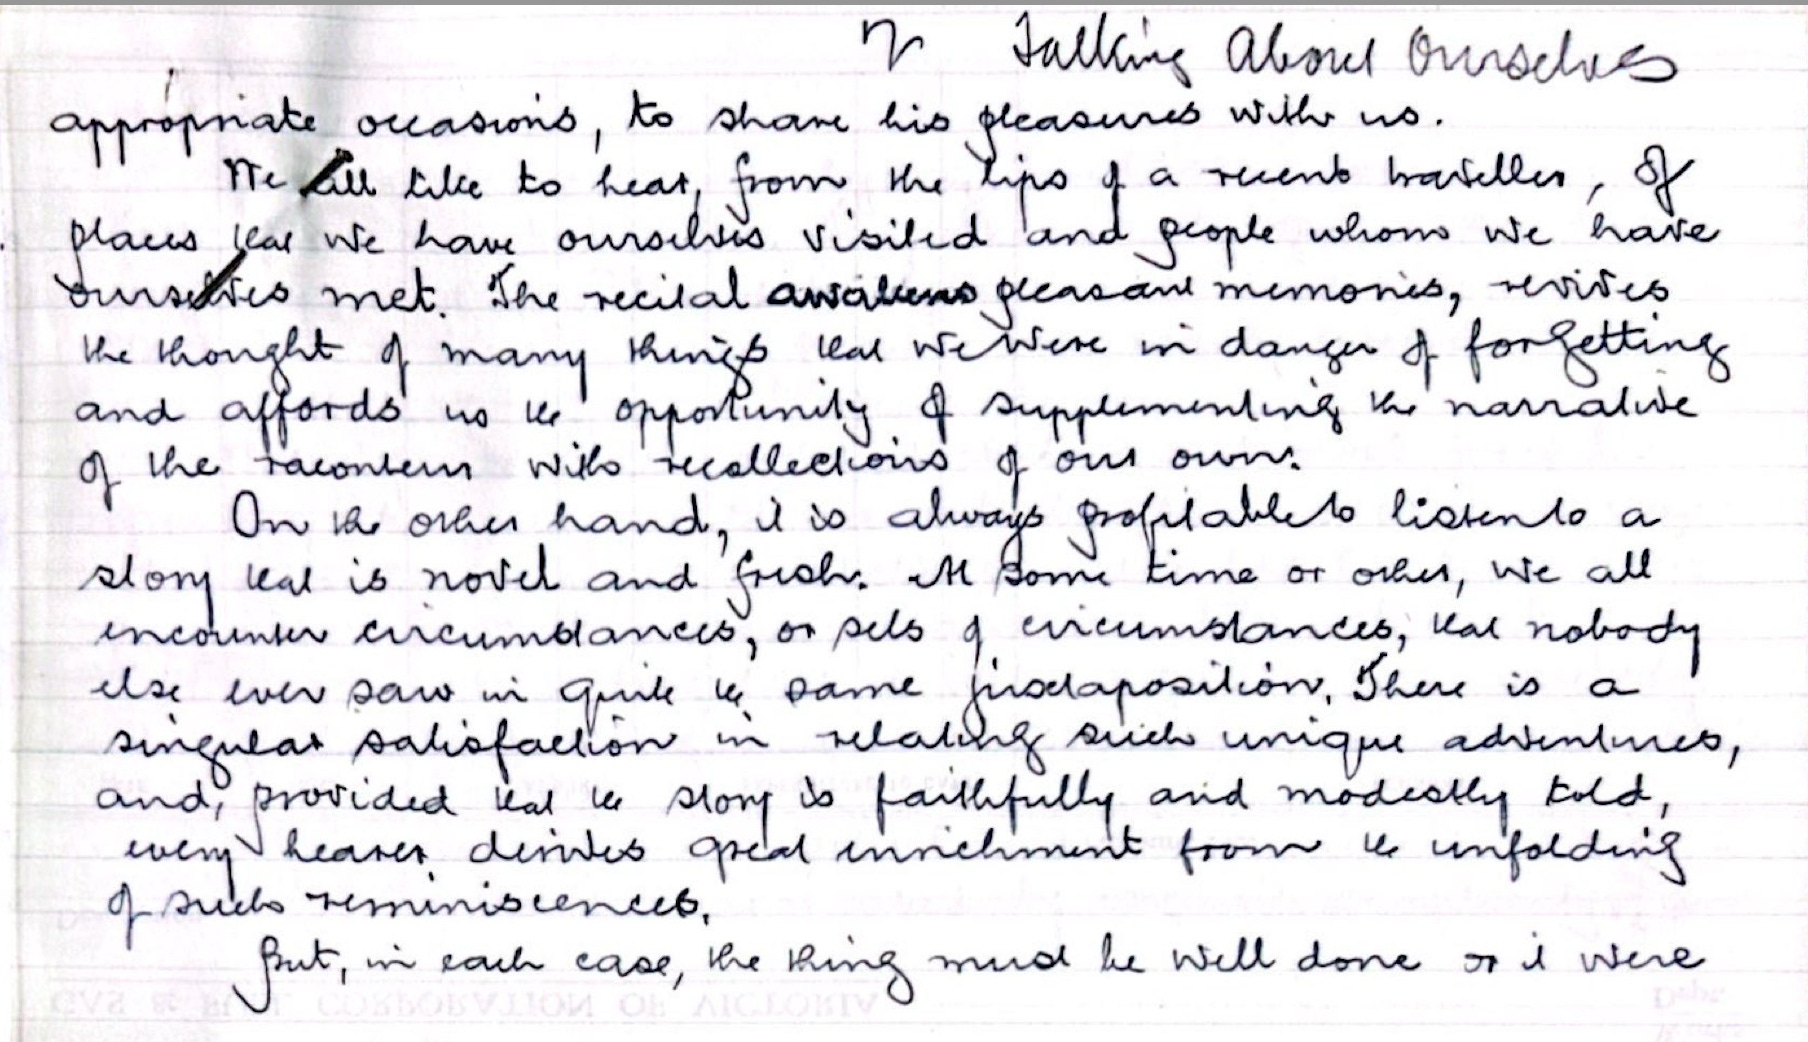 Talking About Ourselves
appropriate occasions, to share his pleasures with us.
We all like to hear, from the lips of a recent traveller, of
places that we have ourselves visited and people whom we have
ourselves met. The recital awakens pleasant memories, revives
the thought of many things that we were in danger of forgetting
and affords us the opportunity of supplementing the narrative
of the raconteur with recollections of our own.
On the other hand, it is always profitable to listen to a
story that is novel and fresh. At some time or other, we all
encounter circumstances, or sets of circumstances, that nobody
else ever saw in quite the same juxtaposition. There is a
singular satisfaction in relating such unique adventures,
and, provided that the story is faithfully and modestly told,
every hearer derives great enrichment from the unfolding
of such reminiscences.
But, in each case, the thing must be well done or it were
GAS & FUEL CORPORATION OF VICTORIA
Dept.